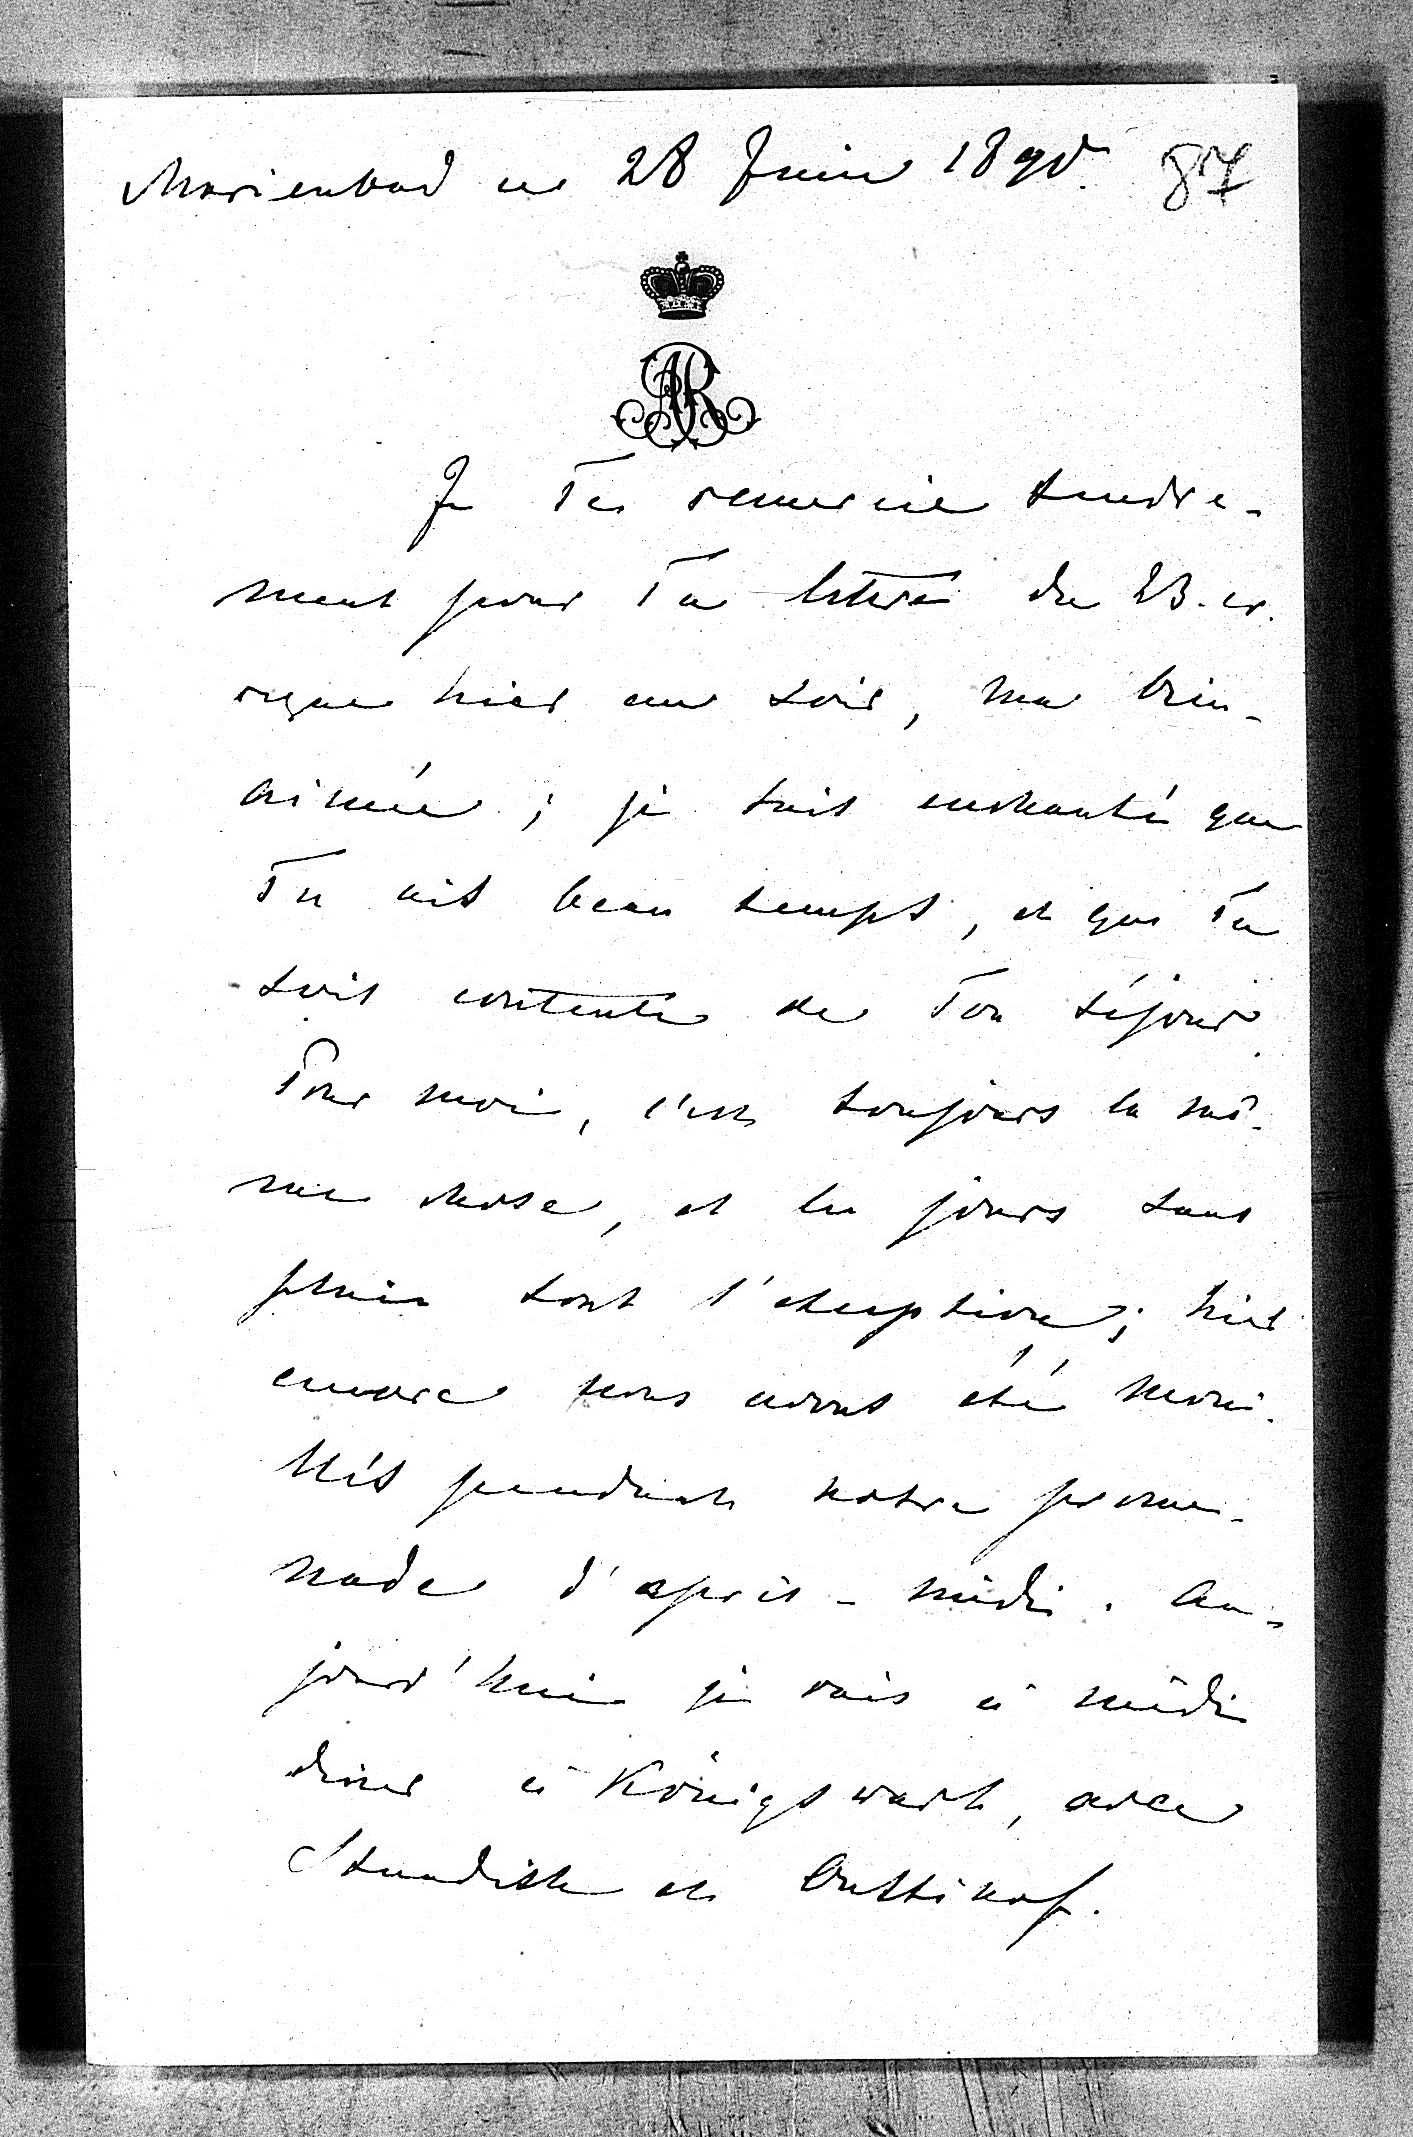 Marienbad ce 28 Juin 1890.
87
AR
Je Te remercie tendre-
ment pour Ta lettre du 23. cr.
reçue hier au soir, ma bien-
aimée ; je suis enchanté que
Tu ais beau temps, et que Tu
sois contente de Ton séjour.
Pour moi, c'est toujours la mê-
me chose, et les jours sans
pluie sont l'exception; hier
encore nous avons été mouil-
lés pendant notre prome-
nade d'après-midi. Au-
jourd'hui je vais à midi
diner à Königswart, avec
Standish et